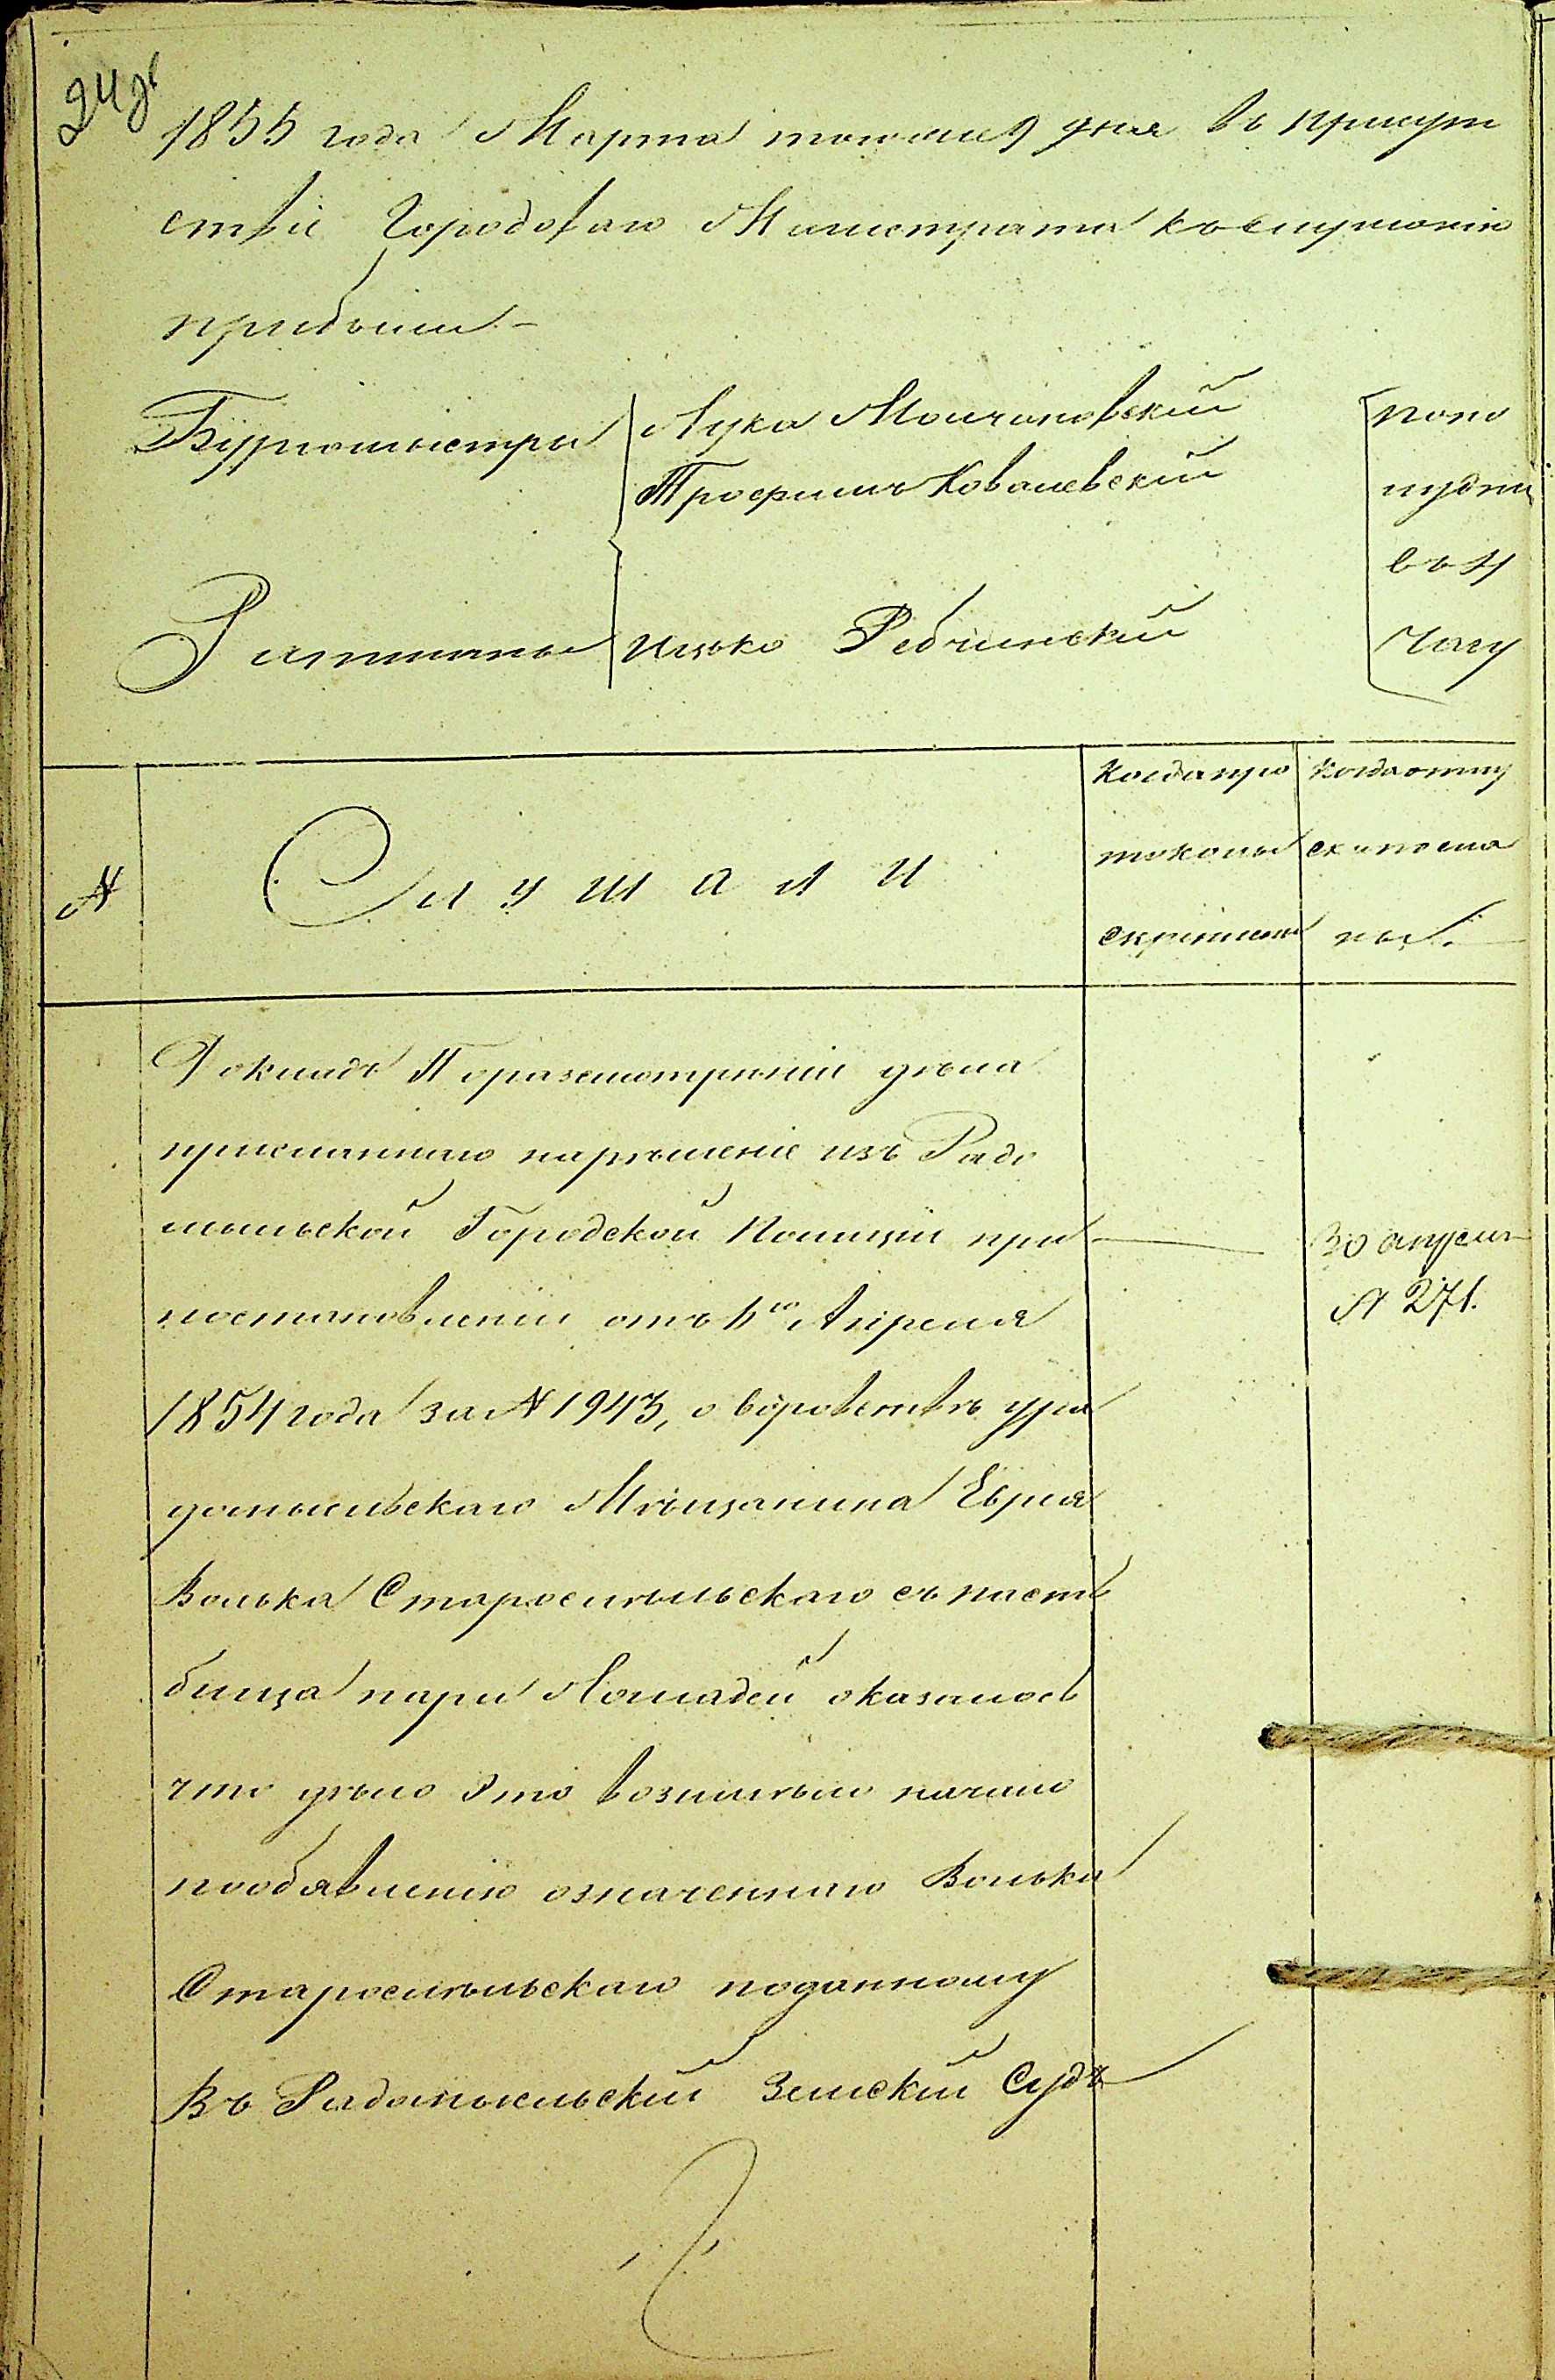 1855 года Марта дня въ присут
ствіе Городоваго Магистрата къ слушанію
прибыли
Бургомистры
Лука Мочановскій
Трофимъ Ковалевскій
Ратманъ Ицько Ребчинскій
попо
лудни
въ 4
часу
№
Слушали
Когда про
токолы
скрѣплены
Когда отпу
скъ посла
ны
Докладъ По разсмотрѣніи дѣла
присланнаго на рѣшеніе изъ Радо
мысльской Городской Полиціи при
постановленіи отъ 5го Апреля
1854 года за № 1943, о воровствѣ у ра
домысльскаго Мѣщанина Еврея
Волька Старосѣльскаго съ паст
бища пары Лошадей оказалось
что дѣло это возимѣло начало
по объявленію означеннаго Волька
Старосѣльскаго поданному
Въ Радомысльскій Земскій Судъ
30 апреля
№ 271.